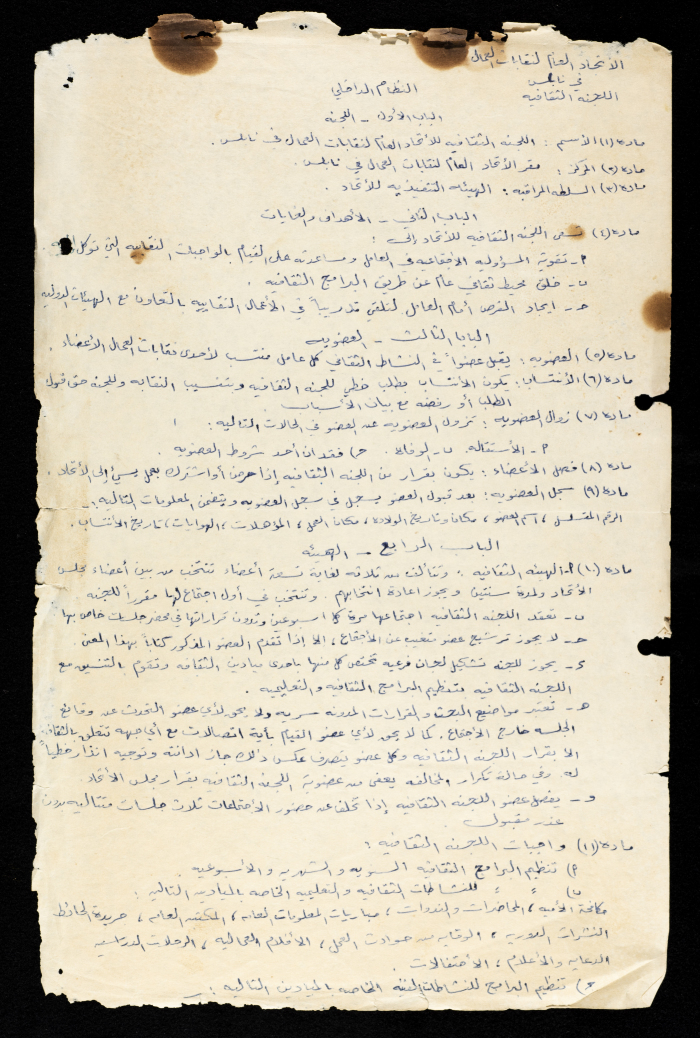 الاتحاد العام لنقابات العمال
في نابلس
اللجنه الثقافيه
النظام الداخلي
الباب الاول - اللجنه
مادة (١) الاسم : اللجنه الثقافيه للاتحاد العام لنقابات العمال في نابلس .
مادة (٢) المركز : مقر الاتحاد العام لنقابات العمال في نابلس .
مادة (٣) السلطه المراقبه : الهيئه التنفيذيه للاتحاد .
الباب الثاني - الأهداف والغايات
مادة (٤) تسعى اللجنه الثقافيه للاتحاد إلى :
أ - تقوية المسؤوليه الاجتماعيه في العامل ومساعدته على القيام بالواجبات النقابيه التي توكل إليه .
ب - خلق محيط ثقافي عام عن طريق البرامج الثقافيه .
ج - ايجاد الفرص أمام العامل لتلقي تدريباً في الأعمال النقابيه بالتعاون مع الهيئات الدوليه
الباب الثالث - العضويه
مادة (٥) العضويه : يقبل عضواً في النشاط الثقافي كل عامل منتسب لاحدى نقابات العمال الأعضاء .
مادة (٦) الانتساب : يكون الانتساب بطلب خطي للجنه الثقافيه وبتنسيب النقابه وللجنه حق قبول
الطلب أو رفضه مع بيان الأسباب
مادة (٧) زوال العضويه : تزول العضويه عن العضو في الحالات التاليه :
أ - الأستقاله . ب - الوفاة . ج) فقدان أحد شروط العضويه .
مادة (٨) فصل الأعضاء : يكون بقرار من اللجنه الثقافيه إذا حرض أو اشترك بعمل يسيء إلى الأتحاد .
مادة (٩) سجل العضويه : بعد قبول العضو يسجل في سجل العضويه ويتضمن المعلومات التاليه :
الرقم المتسلسل ، اسم العضو ، مكان وتاريخ الولاده ، مكان العمل ، المؤهلات ، الهوايات ، تاريخ الأنتساب .
الباب الرابع - الهيئه
مادة (١٠) أ - الهيئه الثقافيه : وتتألف من ثلاثه لغاية تسعة أعضاء تنتخب من بين أعضاء مجلس
الأتحاد ولمدة سنتين ويجوز اعادة انتخابهم . وتنتخب في أول اجتماع لها مقرراً للجنه
ب - تعقد اللجنه الثقافيه اجتماعها مرة كل اسبوعين وتدون قراراتها في محضر جلسات خاص بها
ج - لا يجوز ترشيح عضو متغيب عن الأجتماع ، الا إذا تقدم العضو المذكور كتاباً بهذا المعنى
د - يجوز للجنه تشكيل لجان فرعيه تختص كل منها باحدى ميادين الثقافه وتقوم بالتنسيق مع
اللجنه الثقافيه بتنظيم البرامج الثقافيه والتعليميه .
هـ - تعتبر مواضيع البحث والقرارات المدونه سريه ولا يجوز لأي عضو التحدث عن وقائع
الجلسه خارج الأجتماع . كما لا يجوز لأي عضو القيام بأية اتصالات مع أي جهه تتعلق بالثقافه
الا بقرار اللجنه الثقافيه وكل عضو يتصرف عكس ذلك جاز ادانته وتوجيه انذار خطياً
له وفي حالة تكرار المخالفه يعفى من عضوية اللجنه الثقافيه بقرار مجلس الأتحاد
و - يفصل عضو اللجنه الثقافيه إذا تخلف عن حضور الأجتماعات ثلاث جلسات متتاليه بدون
عذر مقبول .
مادة (١١) واجبات اللجنه الثقافيه :
أ) تنظيم البرامج الثقافيه السنويه والشهريه والأسبوعيه .
ب) " " للنشاطات الثقافيه والتعليميه الخاصه بالميادين التاليه :
مكافحة الأميه ، المحاضرات والندوات ، مباريات المعلومات العامه ، المكتبه العامه ، جريدة الحائط
النشرات الدوريه ، الوقايه من حوادث العمل ، الأفلام العماليه ، الرحلات الدراسيه
الدعايه والأعلام ، الأحتفالات .
ج) تنظيم البرامج للنشاطات الفنيه الخاصه بالميادين التاليه :